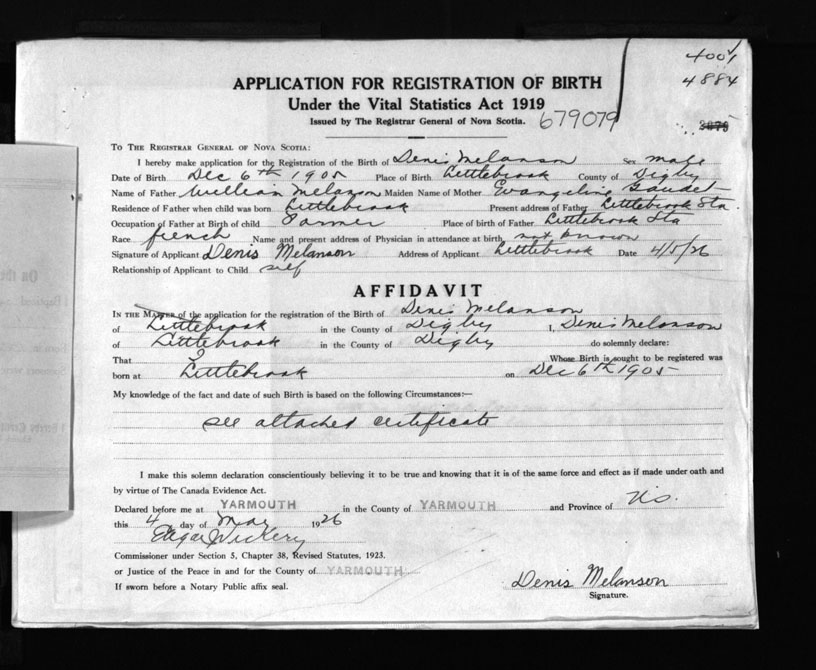 4004
4884
APPLICATION FOR REGISTRATION OF BIRTH
Under the Vital Statistics Act 1919
Issued by The Registrar General of Nova Scotia. 679079
3079
TO THE REGISTRAR GENERAL OF NOVA SCOTIA:
I hereby make application for the Registration of the Birth of Denis Melanson Sex male
Date of Birth Dec 6th 1905 Place of Birth Littlebrook County of Digby
Name of Father William Melanson Maiden Name of Mother Evangeline Gaudet
Residence of Father when child was born Littlebrook Present address of Father Littlebrook Sta.
Occupation of Father at Birth of child Farmer Place of birth of Father Littlebrook Sta
Race french Name and present address of Physician in attendance at birth not known
Signature of Applicant Denis Melanson Address of Applicant Littlebrook Date 4/5/26
Relationship of Applicant to Child self
AFFIDAVIT
IN THE MATTER of the application for the registration of the Birth of Denis Melanson
of Littlebrook in the County of Digby I, Denis Melanson
of Littlebrook in the County of Digby do solemnly declare:
That I Whose Birth is sought to be registered was
born at Littlebrook on Dec 6th 1905
My knowledge of the fact and date of such Birth is based on the following Circumstances:—
see attached certificate
I make this solemn declaration conscientiously believing it to be true and knowing that it is of the same force and effect as if made under oath and
by virtue of The Canada Evidence Act.
Declared before me at YARMOUTH in the County of YARMOUTH and Province of N.S.
this 4 day of May 1926
Edgar Vickery
Commissioner under Section 5, Chapter 38, Revised Statutes, 1923.
or Justice of the Peace in and for the County of YARMOUTH
If sworn before a Notary Public affix seal.
Denis Melanson
Signature.